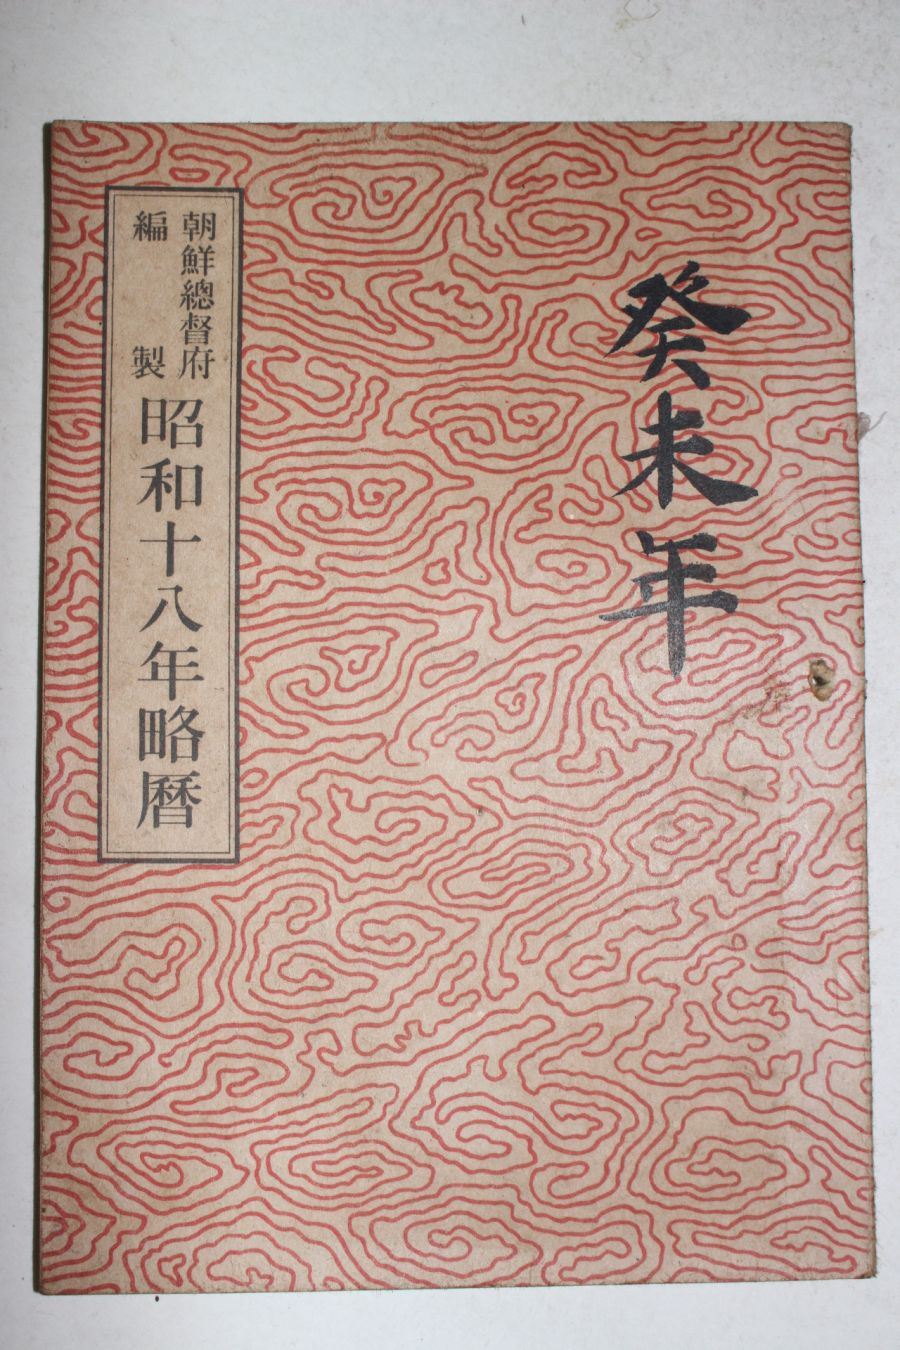 癸未年
朝鮮總督府
編製
昭和十八年略曆